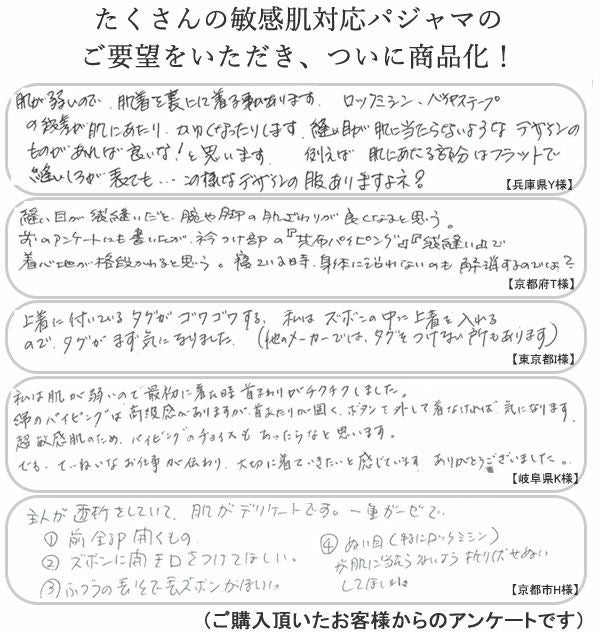 たくさんの敏感肌対応パジャマの
ご要望をいただき、ついに商品化！
肌が弱いので、肌着を裏にして着る事があります。 ロックミシン、バイヤステープ
の縫帯が肌にあたり、かゆくなったりします。縫い目が肌に当たらないような デザインの
ものがあれば良いな！と思います。 例えば 肌にあたる部分はフラットで
縫いしろが表でも… この様なデザインの服ありますよネ？
【兵庫県Y様】
縫い目が袋縫いだと、腕や脚の肌ざわりが良くなると思う。
前のアンケートにも書いたが、衿つけ部の『共布パイピング』『袋縫い』で
着心地が格段かわると思う。寝ている時、身体に沿わないのも解消するのでは？
【京都府T様】
上着に付いている タグが ゴワゴワする。 私は ズボンの中に上着を入れる
ので、タグが まず気になりました。 （他のメーカーでは、タグをつけない所もあります）
【東京都I様】
私は肌が弱いので最初に着た時首まわりがチクチクしました。
綿のパイピングは高級感がありますが、首あたりが固く、ボタンを外して着なければ、気になります。
超敏感肌のため、パイピングのチョイスもあったらなと思います。
でも、ていねいなお仕事が伝わり、大切に着ていきたいと感じています。 ありがとうございました。
【岐阜県K様】
主人が 透析をしていて、肌がデリケートです。一重ガーゼで、
① 前全部開くもの。
② ズボンに開き口をつけてほしい。
③ ふつうの長そで長ズボンがほしい。
④ ぬい目（特にロックミシン）
が肌に当たらないよう 折り伏せぬい
してほしい。
【京都市H様】
（ご購入頂いたお客様からのアンケートです）